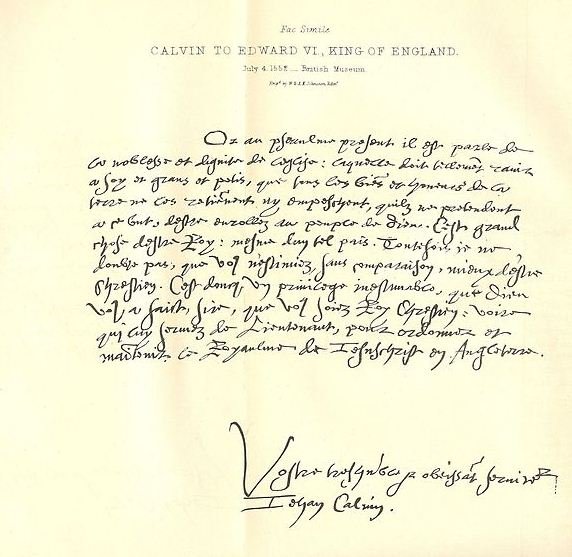 Fac Simile
CALVIN TO EDWARD VI., KING OF ENGLAND.
July 4. 1552 _ British Museum
Or au pseaulme present il est parle de
la noblesse et dignite de leglise: laquelle doit tellement ravir
a soy et grans et petis, que tous les biens et honneurs de la
terre ne les retienent ny empeschent, quilz ne pretendent
a ce but, destre enrollez au peuple de Dieu. Cest grand
chose destre Roy: mesme dun tel pais. Toutefois ie ne
doubte pas, que vous nestimiez, sans comparaison, mieux destre
Chrestien. Cest donq un privilege inestimable, que Dieu
vous a faict, sire, que vous soiez Roy Chrestien: voire
qui luy servez de Lieutenant, pour ordonner et
maintenir le Royaulme de Iesuschrist en Angleterre.
Vostre treshumble & obeissant serviteur
Iehan Calvin.